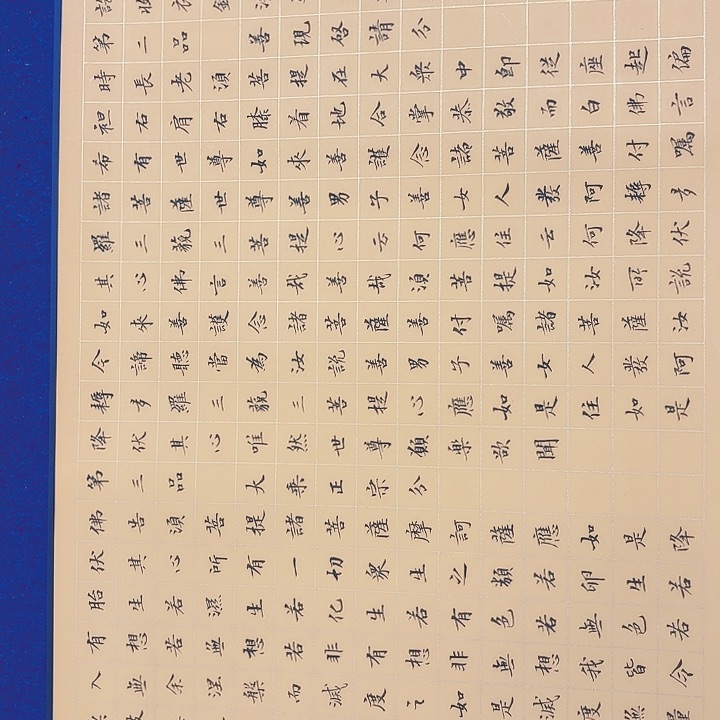 第二品 善現啓請分
時長老湏菩提在大衆中即從座起偏
袒右肩右膝着地合掌恭敬而白佛言
希有世尊如來善護念諸菩薩善付囑
諸菩薩世尊善男子善女人發阿耨多
羅三藐三菩提心云何應住云何降伏
其心佛言善哉善哉湏菩提如汝所說
如來善護念諸菩薩善付囑諸菩薩汝
今諦聽當為汝說善男子善女人發阿
耨多羅三藐三菩提心應如是住如是
降伏其心唯然世尊願樂欲聞
第三品 大乘正宗分
佛告湏菩提諸菩薩摩訶薩應如是降
伏其心所有一切衆生之類若卵生若
胎生若濕生若化生若有色若無色若
有想若無想若非有想非無想我皆令
入無余涅槃而滅度之如是滅度無量